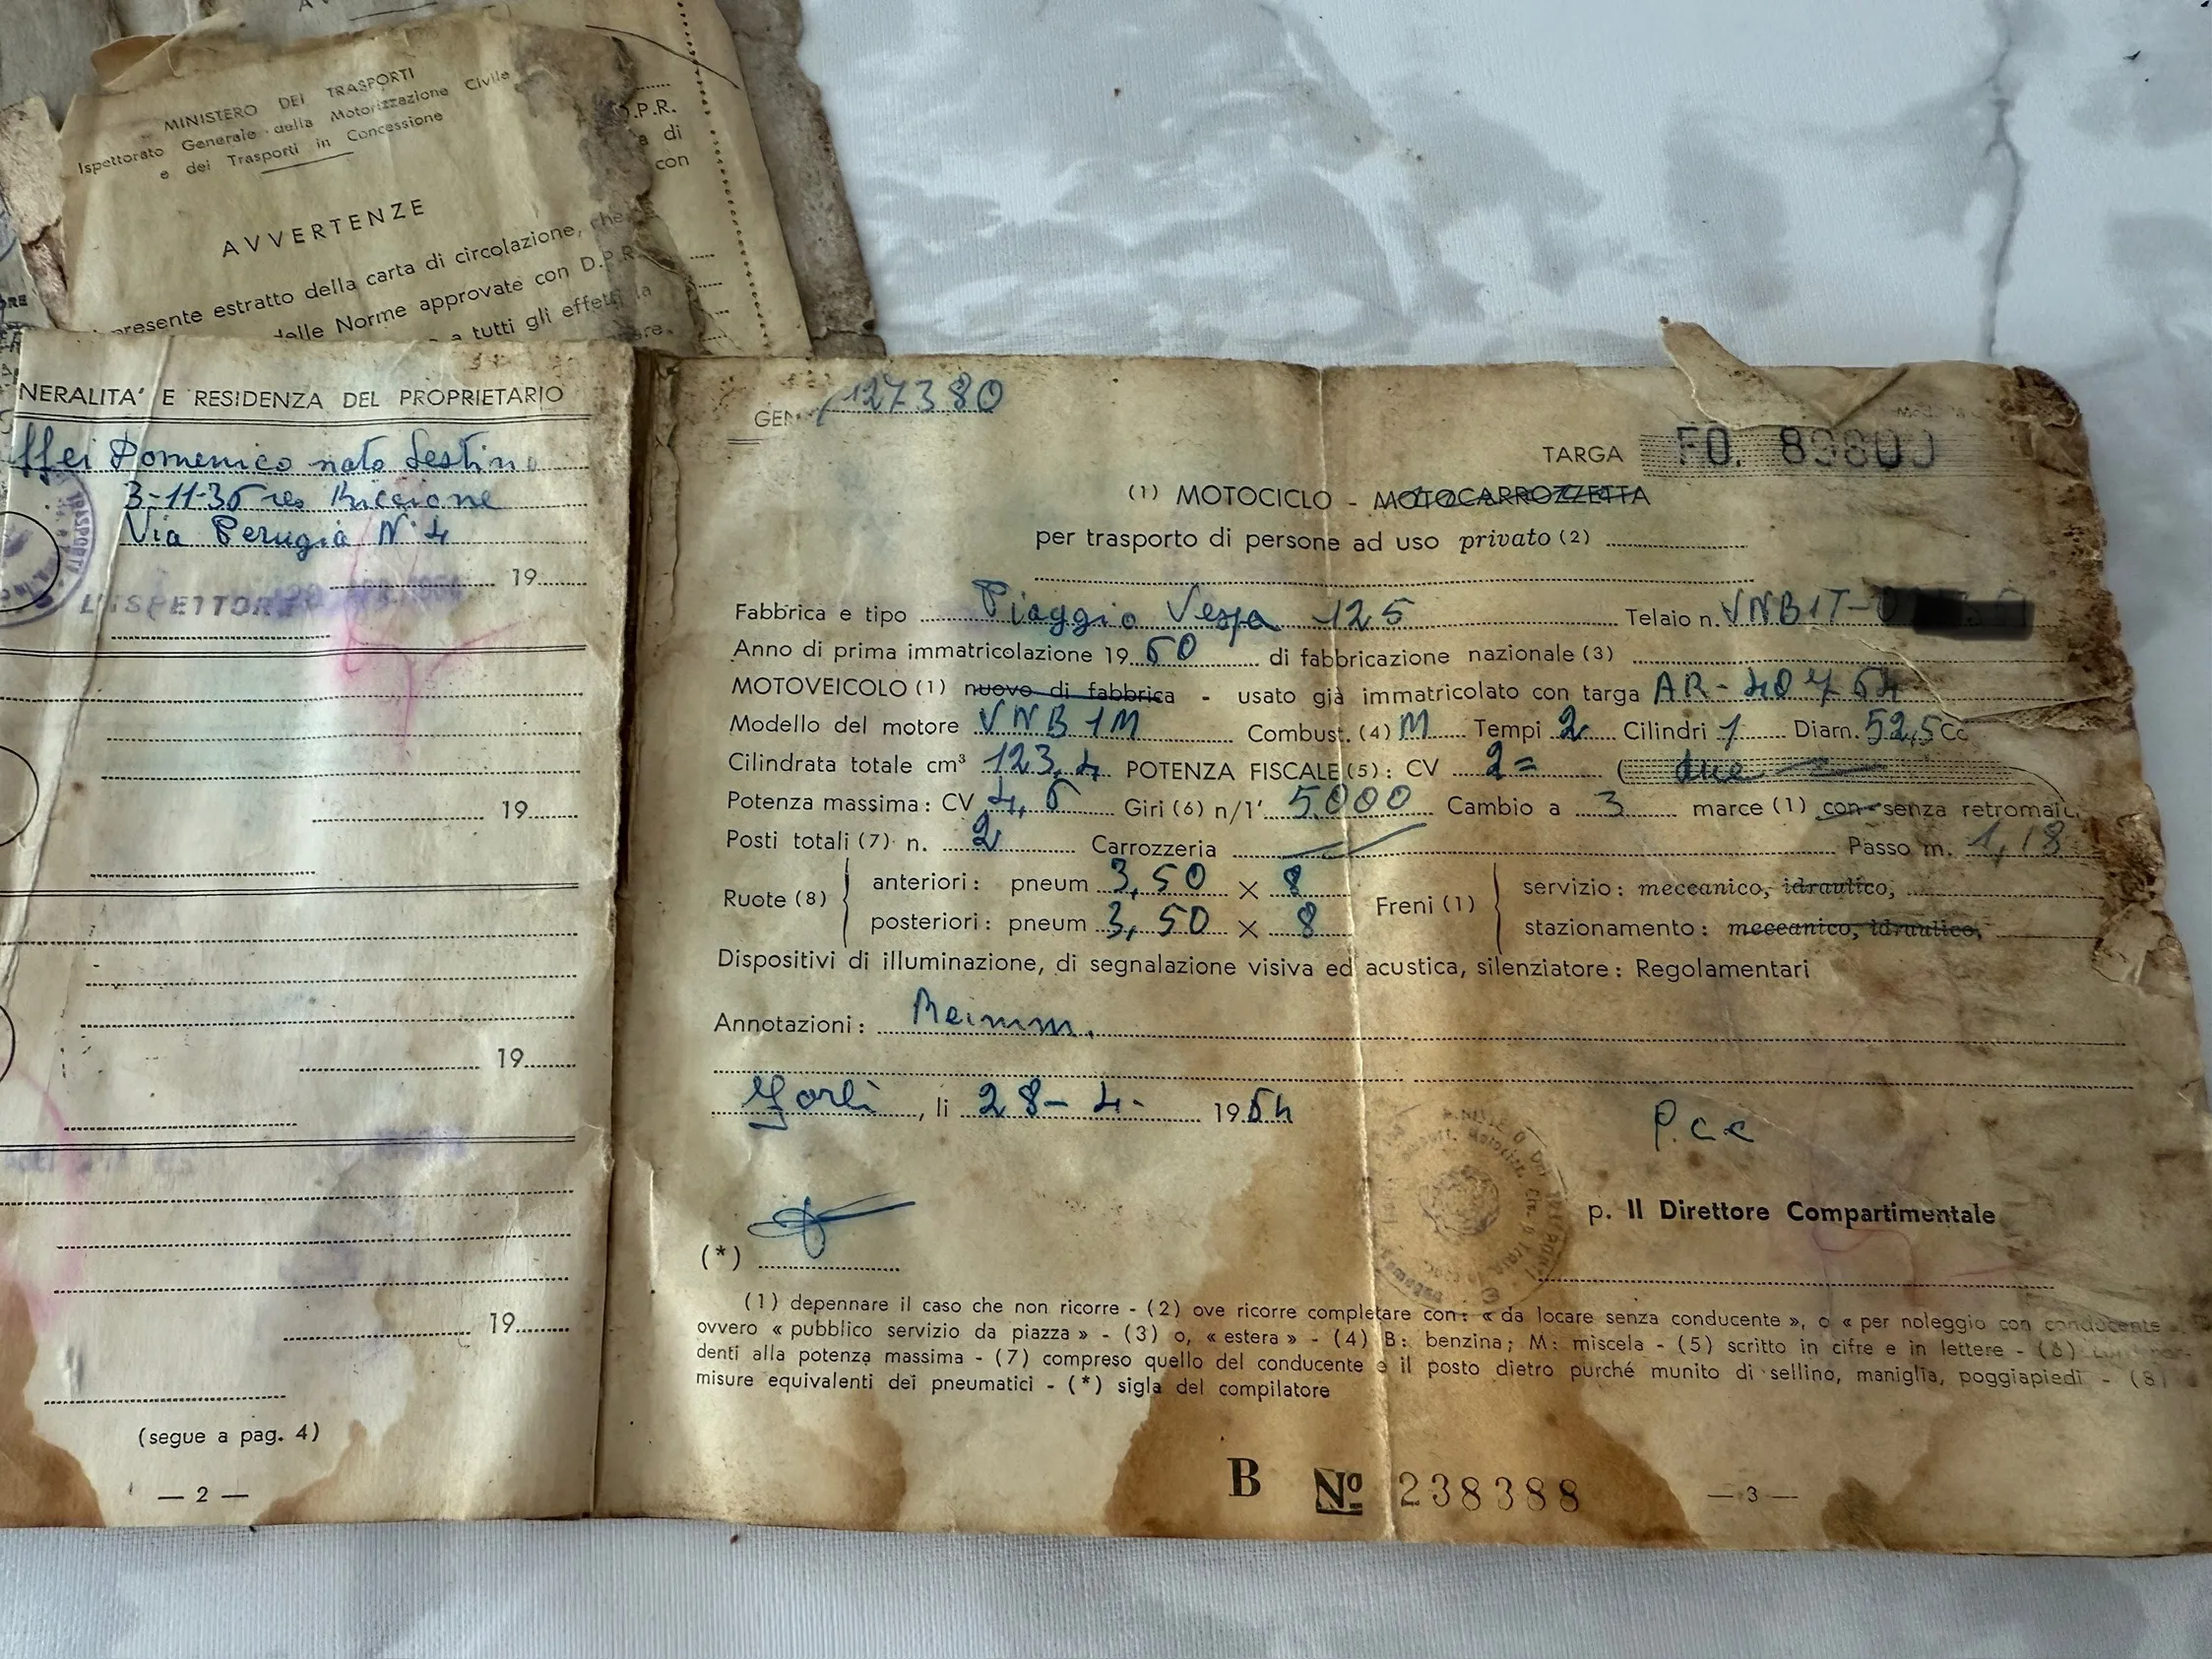 MINISTERO DEI TRASPORTI
Ispettorato Generale della Motorizzazione Civile
e dei Trasporti in Concessione
AVVERTENZE
presente estratto della carta di circolazione, che
delle Norme approvate con D.P.R.
a tutti gli effetti la
D.P.R.
a di
con
NERALITA' E RESIDENZA DEL PROPRIETARIO
ffei Domenico nato Sestino
3-11-36 res Riccione
Via Perugia N° 4
19
L'ISPETTORE
19
19
19
(segue a pag. 4)
— 2 —
GEN. 127380
TARGA FO. 89800
(1) MOTOCICLO - MOTOCARROZZETTA
per trasporto di persone ad uso privato (2)
Fabbrica e tipo Piaggio Vespa 125 Telaio n. VNB1T-0
Anno di prima immatricolazione 19 60 di fabbricazione nazionale (3)
MOTOVEICOLO (1) nuovo di fabbrica - usato già immatricolato con targa AR-
Modello del motore VNB1M Combust. (4) M Tempi 2 Cilindri 1 Diam. 52,5
Cilindrata totale cm³ 123,4 POTENZA FISCALE (5): CV 2= ( due
Potenza massima: CV 4,6 Giri (6) n/1' 5000 Cambio a 3 marce (1) con senza retromarc
Posti totali (7) n. 2 Carrozzeria Passo m. 1,18
Ruote (8) anteriori: pneum 3,50 × 8 Freni (1) servizio: meccanico, idraulico,
posteriori: pneum 3,50 × 8 stazionamento: meccanico, idraulico,
Dispositivi di illuminazione, di segnalazione visiva ed acustica, silenziatore: Regolamentari
Annotazioni: Reimm.
Forlì, li 28-4- 1964
P.c.c
p. Il Direttore Compartimentale
(*)
(1) depennare il caso che non ricorre - (2) ove ricorre completare con: « da locare senza conducente », o « per noleggio con conducente »
ovvero « pubblico servizio da piazza » - (3) o, « estera » - (4) B: benzina; M: miscela - (5) scritto in cifre e in lettere - (6)
denti alla potenza massima - (7) compreso quello del conducente e il posto dietro purché munito di sellino, maniglia, poggiapiedi - (8)
misure equivalenti dei pneumatici - (*) sigla del compilatore
B Nº 238388
— 3 —